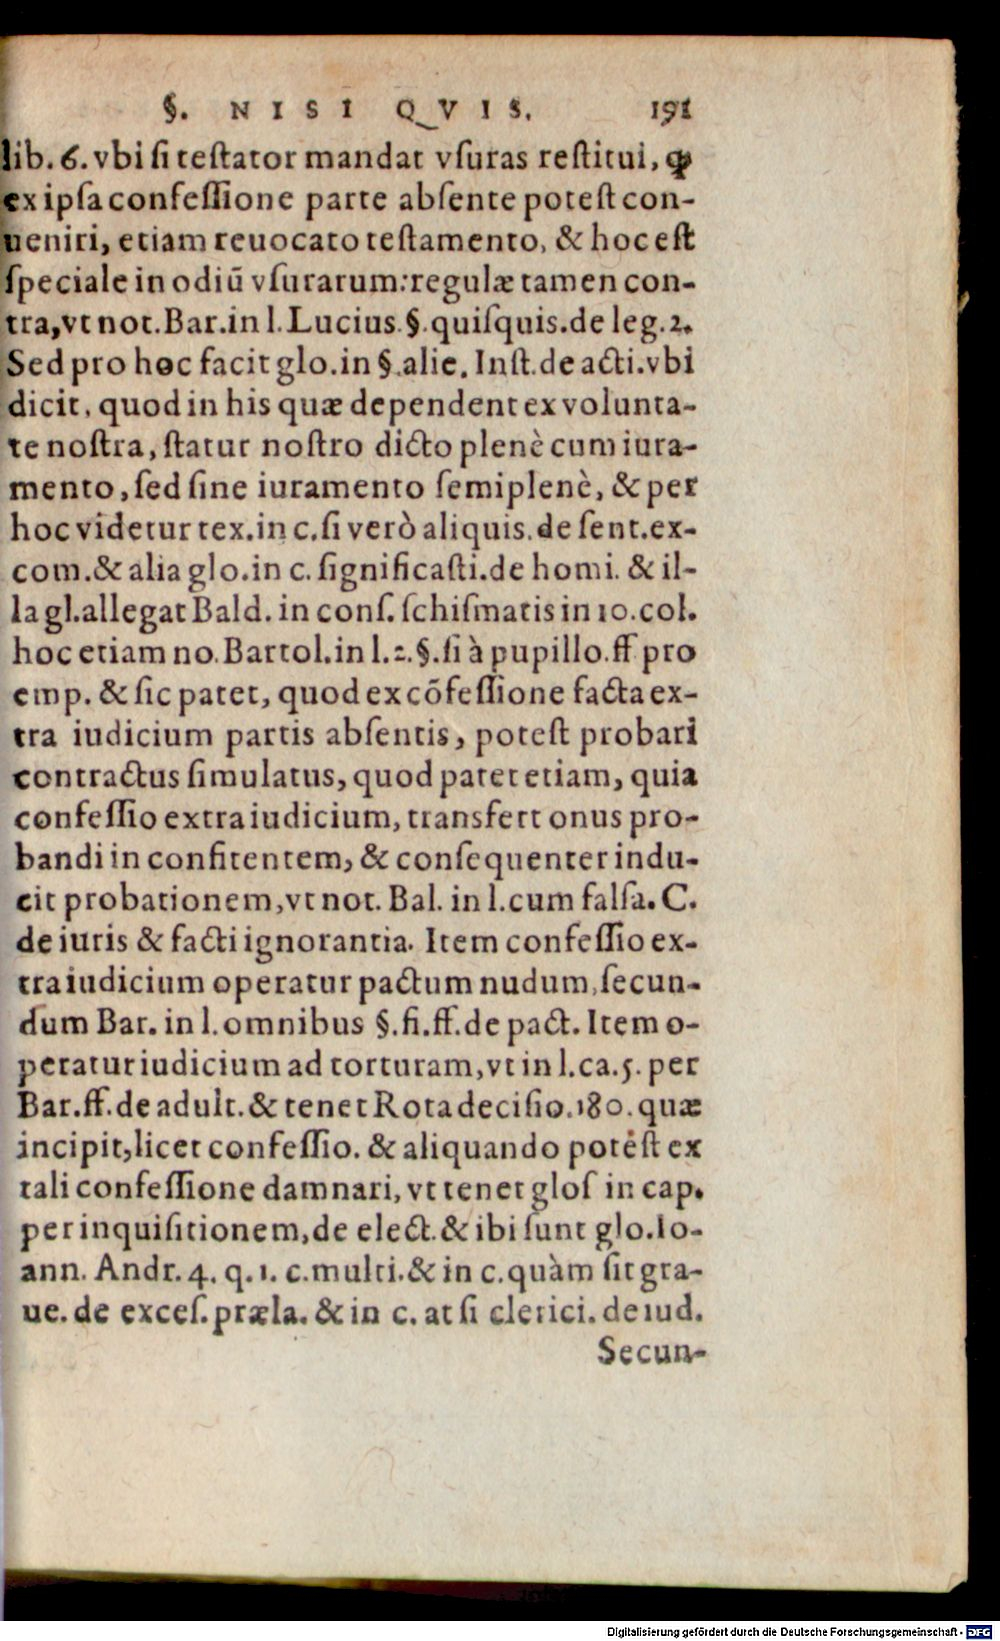 §. NISI QVIS. 191
lib. 6. vbi ſi teſtator mandat vſuras reſtitui, ꝙ
ex ipſa confeſſione parte abſente poteſt con-
ueniri, etiam reuocato teſtamento, & hoc eſt
ſpeciale in odiū vſurarum: regulæ tamen con-
tra, vt not. Bar. in l. Lucius. §. quiſquis. de leg. 2.
Sed pro hoc facit glo. in §. alie. Inſt. de acti. vbi
dicit, quod in his quæ dependent ex volunta-
te noſtra, ſtatur noſtro dicto plenè cum iura-
mento, ſed ſine iuramento ſemiplenè, & per
hoc videtur tex. in c. ſi verò aliquis. de ſent. ex-
com. & alia glo. in c. ſignificaſti. de homi. & il-
la gl. allegat Bald. in conſ. ſchiſmatis in 10. col.
hoc etiam no. Bartol. in l. 2. §. ſi à pupillo. ff pro
emp. & ſic patet, quod ex cõfeſſione facta ex-
tra iudicium partis abſentis, poteſt probari
contractus ſimulatus, quod patet etiam, quia
confeſſio extra iudicium, transfert onus pro-
bandi in confitentem, & conſequenter indu-
cit probationem, vt not. Bal. in l. cum falſa. C.
de iuris & facti ignorantia. Item confeſſio ex-
tra iudicium operatur pactum nudum, ſecun-
dum Bar. in l. omnibus §. fi. ff. de pact. Item o-
peratur iudicium ad torturam, vt in l. ca. 5. per
Bar. ff. de adult. & tenet Rota deciſio. 180. quæ
incipit, licet confeſſio. & aliquando poteſt ex
tali confeſſione damnari, vt tenet gloſ in cap.
per inquiſitionem, de elect. & ibi ſunt glo. Io-
ann. Andr. 4. q. 1. c. multi. & in c. quàm ſit gra-
ue. de exceſ. præla. & in c. at ſi clerici. de iud.
Secun-
Digitalisierung gefördert durch die Deutsche Forschungsgemeinschaft - DFG